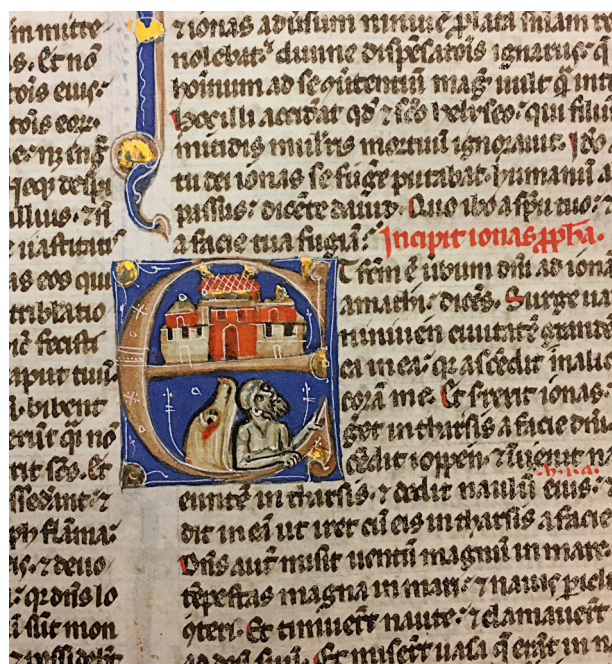 in mitte
s. Et nō
tois eius
tois eor
despi
llius. 7 ñ
uastitatis
is eos qui
tribłatio
fecisti
aput tuū
bibent
erūt qi nō
rit scs. Et
ssedant 7
ph flāma:
is. 7 deuo
qr dñs lo
i sūt mon
7 ionas adūsum niniue ꝓlata sniam
nolebat diuine dispēsatōis ignarus: q̄
hoīnum ad se
hoc illi accidat qd 7 scō helyseo: qui filiū
mulʼris mortuū ignorauit.
tu dei ionas se fuge putabat. humanū
passus: dicēte dauid. Quo ibo a spū tuo: 7
a facie tua fugiā:
Incipit ionas ꝓpha.
Et fcm ē ūbum dn̄i ad ionā
amathi: dicēs. Surge ua
niniuen ciuitatē grandē
ei in ea: qr ascēdit mali
corā me. Et srexit ionas.
get in tharsis a facie dn̄i.
cēdit ioppen. 7 īuenit na
euntē in tharsis. 7 dedit naulū eius. 7
dit in eā ut iret cū eis in tharsis a facie
Dn̄s aut̄ misit uentū magnū in mare.
tēpestas magna in mari. 7 nauis piclʼ
ꝯteri. Et timuert̄ naute. 7 clamauert̄
ad dm̄ suū. Et misert̄ uasa q̄ erāt in n